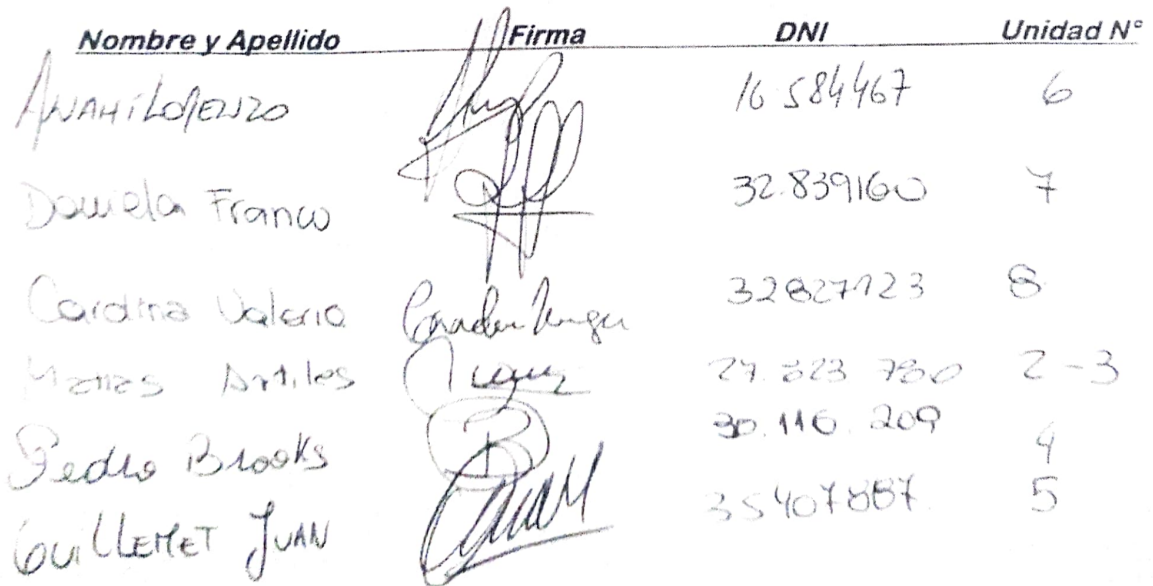 Nombre y Apellido Firma DNI Unidad N°
ANAHí LORENZO 16.584467 6
Daniela Franco 32.839160 7
Carolina Valeria 32827123 8
Matias Artiles 27.323 730 2-3
Pedro Brooks 30.116.209 4
GUILLEMET JUAN 35407887 5